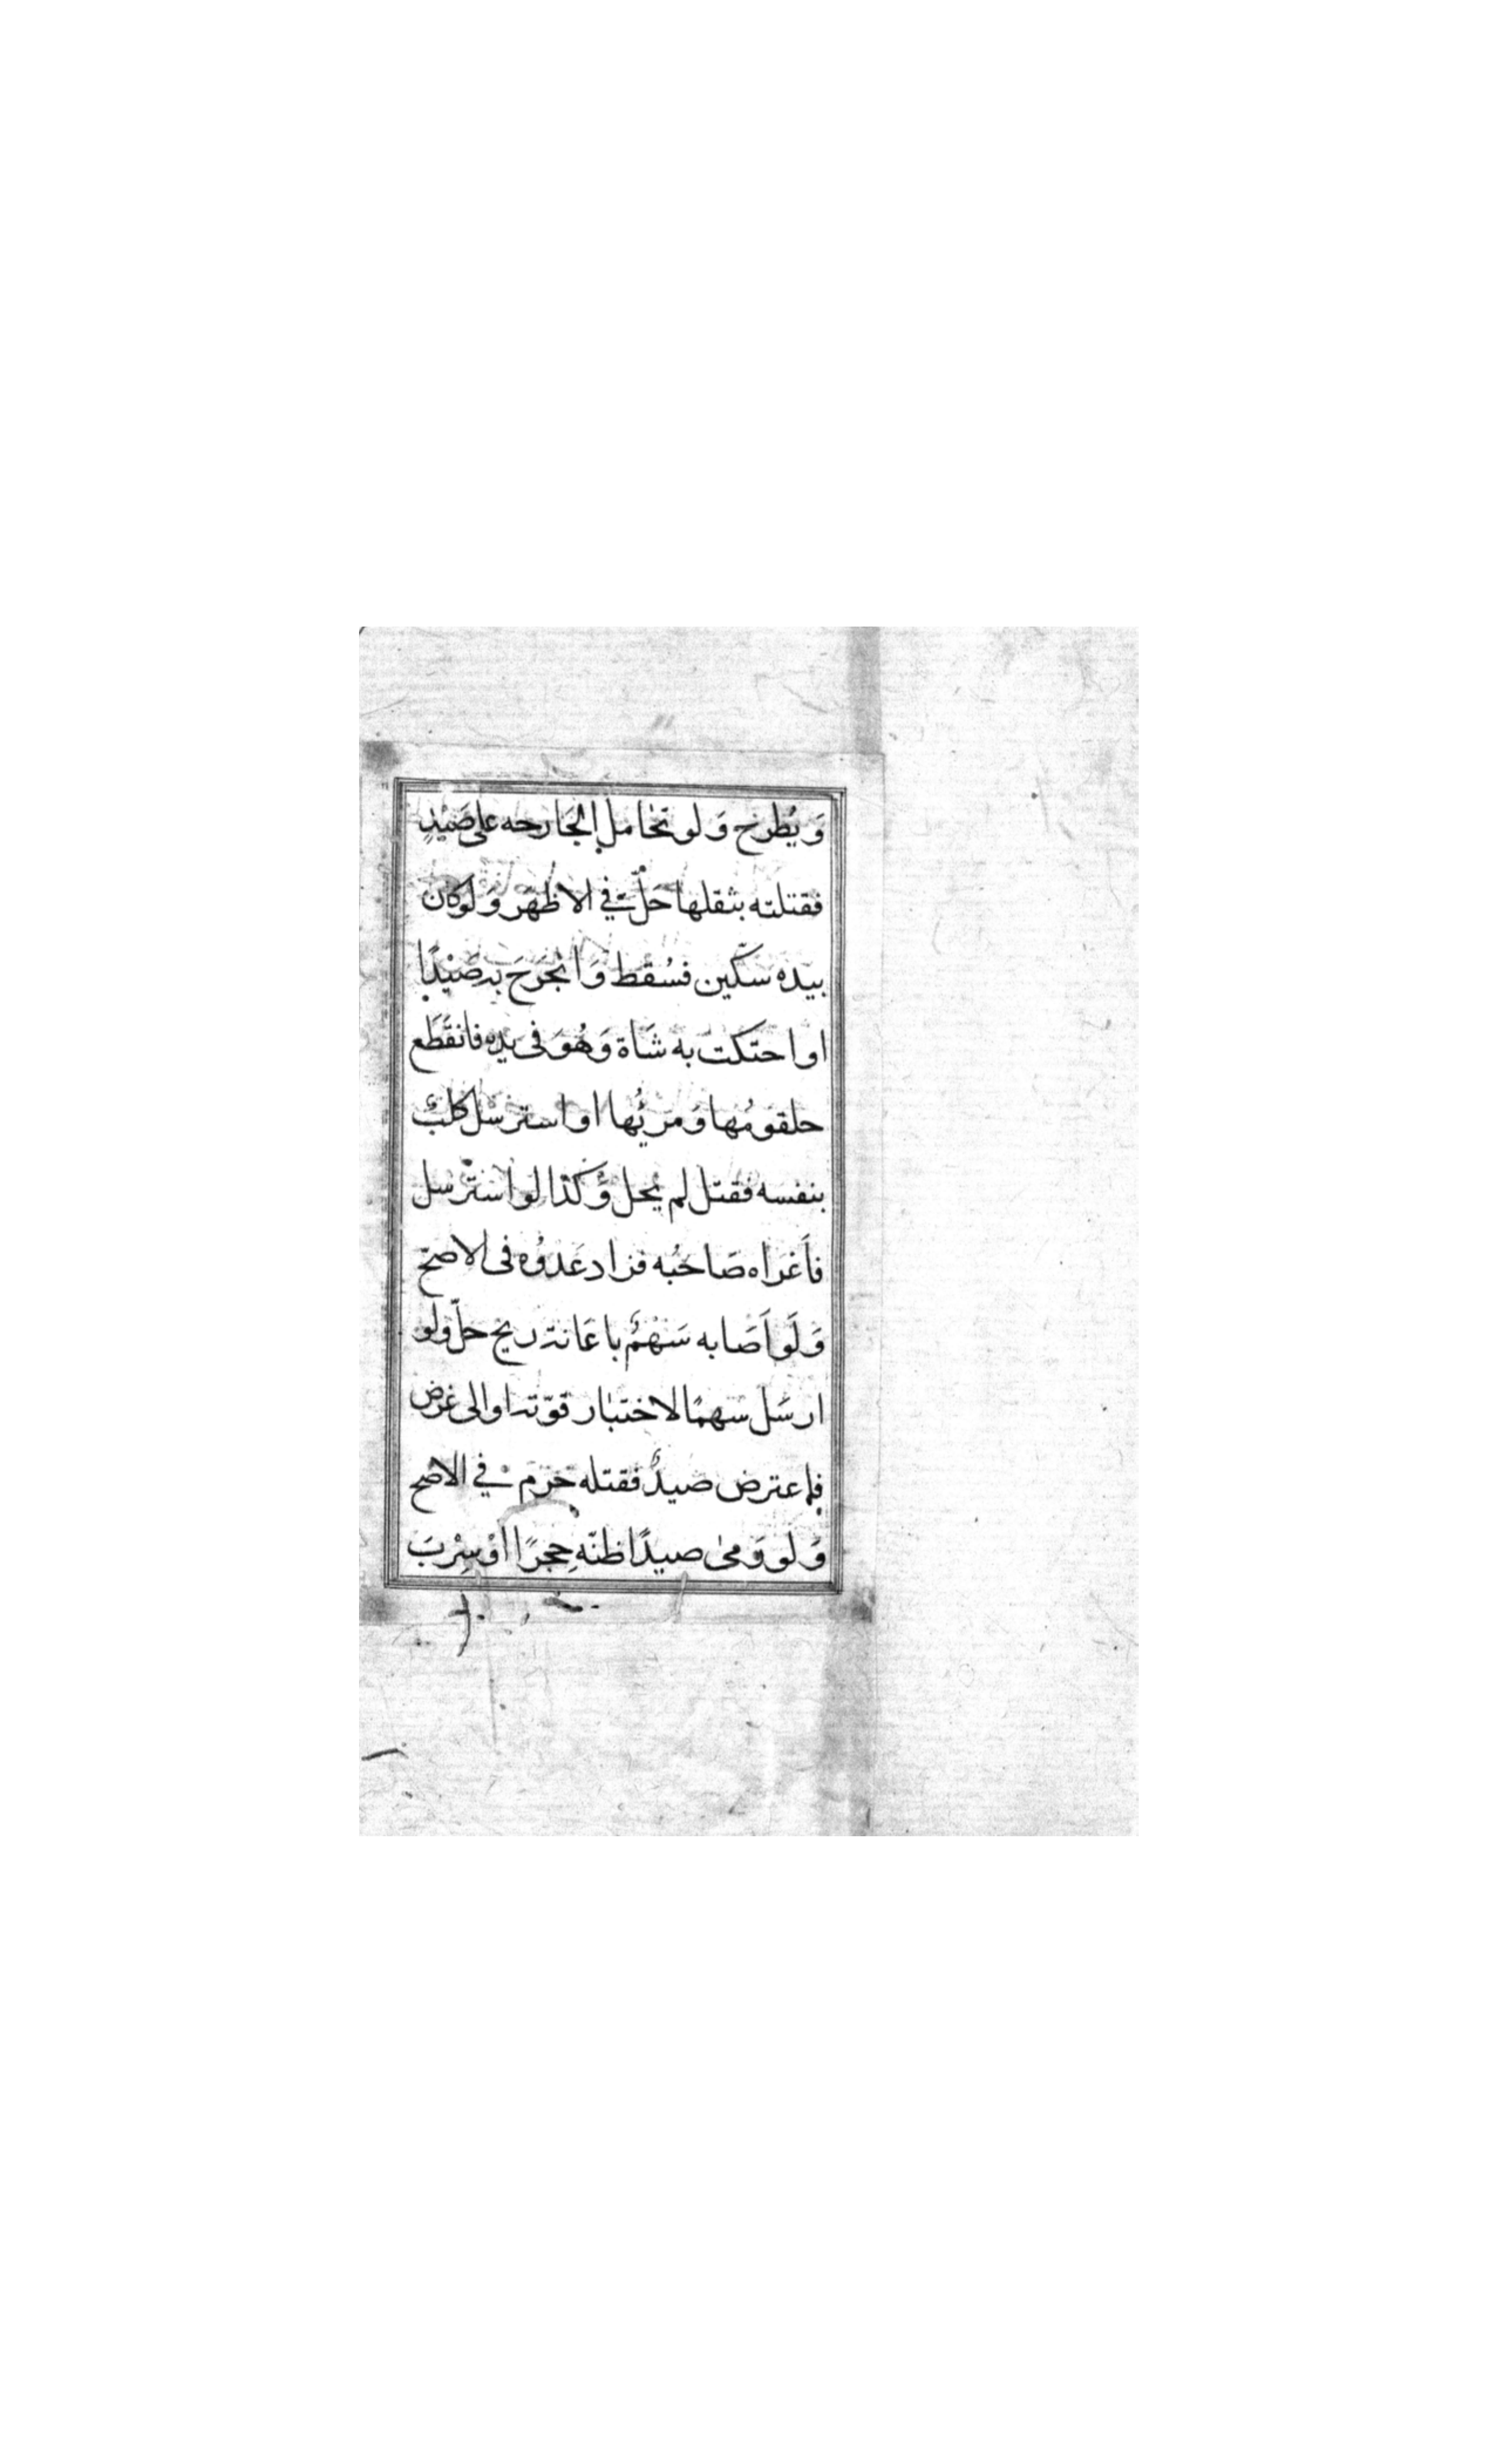 وَيُطرَح وَلو تحَامل الجَارحه على صَيْدٍ
فقتلته بثقلها حَلّ في الاظهَر وَلوكان
بيَده سَكّين فسُقط وَانجَرَحَ به صَيْدًا
او احتكت به شَاة وَهُوَ فى يده فانقَطَع
حلقومُها وَمَريُها او استرسَل كلبٌ
بنفسه فقتل لم يحل وَكذا لو استرسل
فاَغرَاه صَاحبُه فزاد عَدوُه فى الاصحّ
وَلَو اَصَابه سَهْمٌ باعَانة ريح حلّ ولو
ارسَل سَهمًا لاختبَار قوّته او الى غرض
فاعترض صَيدٌ فقتله حَرم في الاصح
وَلو وَمىٰ صيدًا ظنّه حِجرًا اوْ سِرْبَ